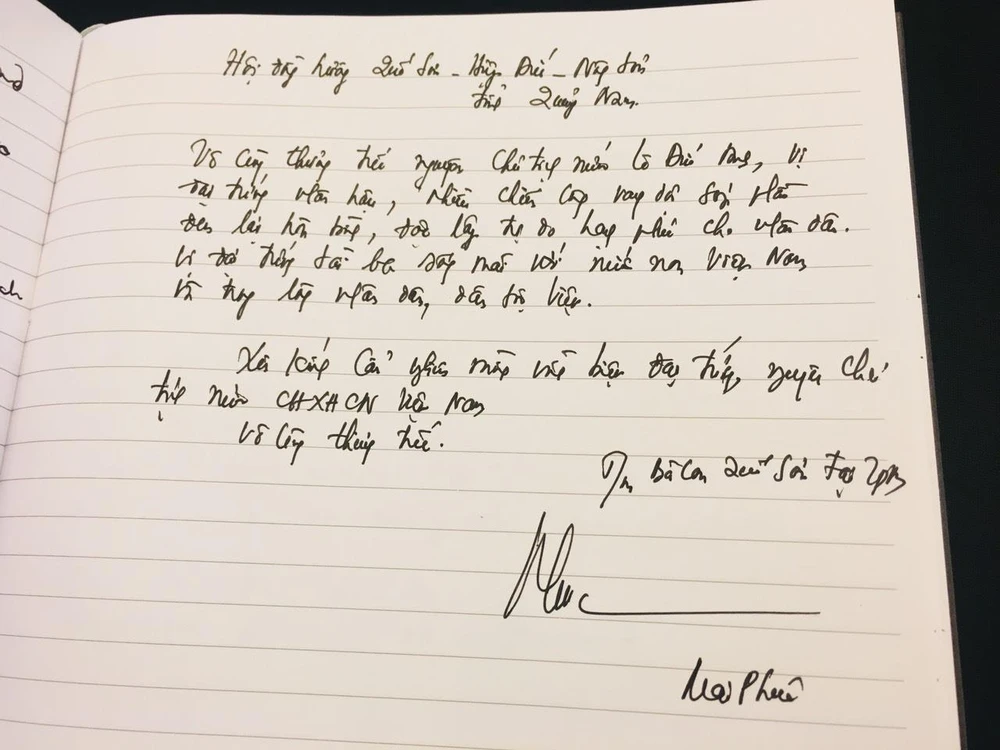 Hội đồng hương Quế Sơn - Hiệp Đức - Nông Sơn
tỉnh Quảng Nam.
Vô cùng thương tiếc nguyên Chủ tịch nước Lê Đức Anh, vị
đại tướng nhân hậu, nhiều chiến công vang dội góp phần
đem lại hòa bình, độc lập tự do hạnh phúc cho nhân dân.
Vị đại tướng tài ba sống mãi với nước non Việt Nam
và trong lòng nhân dân, dân tộc Việt.
Xin kính cẩn nghiêng mình vĩnh biệt đại tướng, nguyên Chủ
tịch nước CHXHCN Việt Nam
Vô cùng thương tiếc.
T/m Bà con Quế Sơn tại
Mai Phước